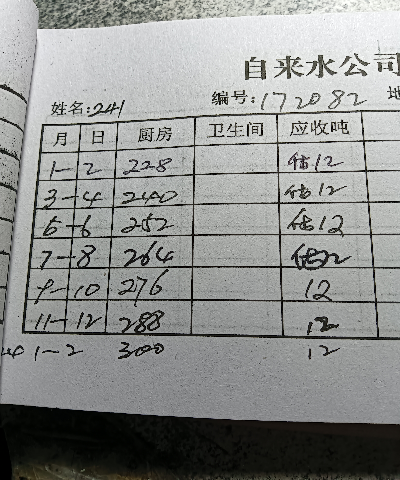 自来水公司
姓名:241 编号:172082 地
月 日 厨房 卫生间 应收吨
1-2 228 估12
3-4 240 估12
5-6 252 估12
7-8 264 估12
9-10 276 12
11-12 288 12
1-2 300 12